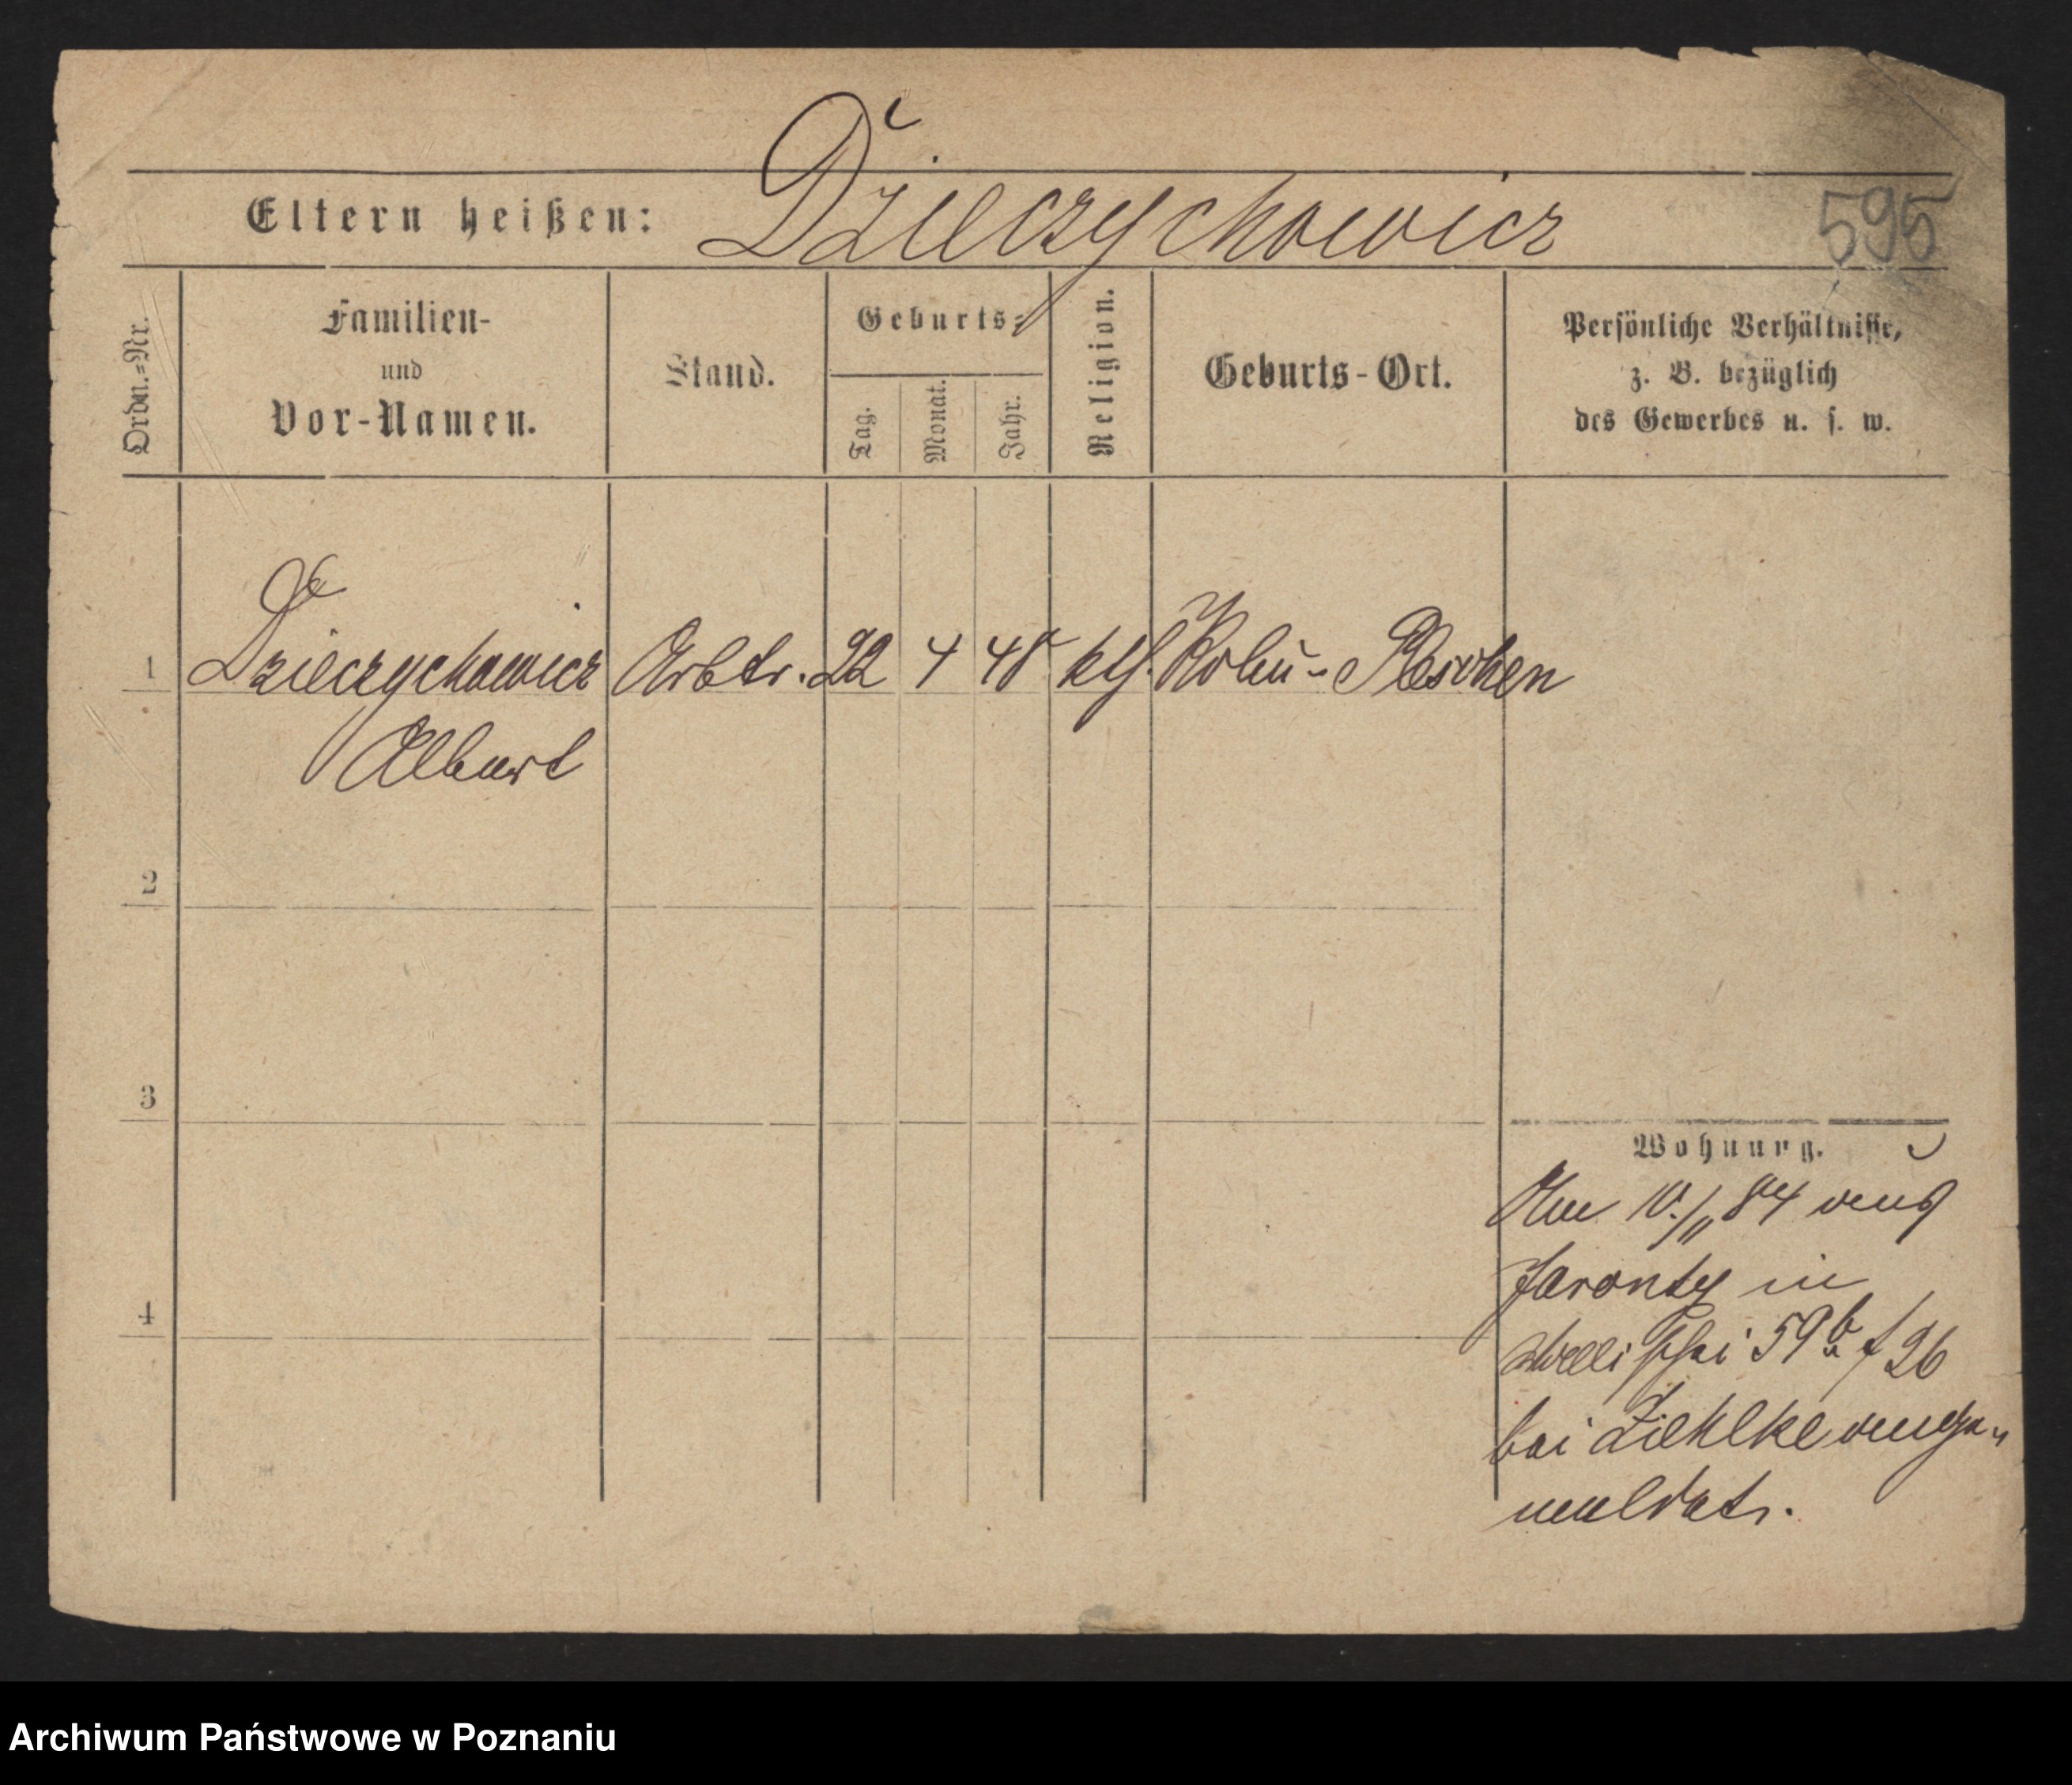 Eltern heißen: Dzieczychowicz
595
Ordn.=Nr.
Familien-
und
Vor-Namen.
Stand.
Geburts=
Tag.
Monat.
Jahr.
Religion.
Geburts-Ort.
Persönliche Verhältnisse,
z. B. bezüglich
des Gewerbes u. s. w.
1 Dzieczychowicz Arbtr. 22 4 48 kth. Pleschen
Albert
2
3
4
Wohnung.
Am 10./11 84 aus
in
59 b f 26
bei Ziehlke ange-
meldet.
Archiwum Państwowe w Poznaniu